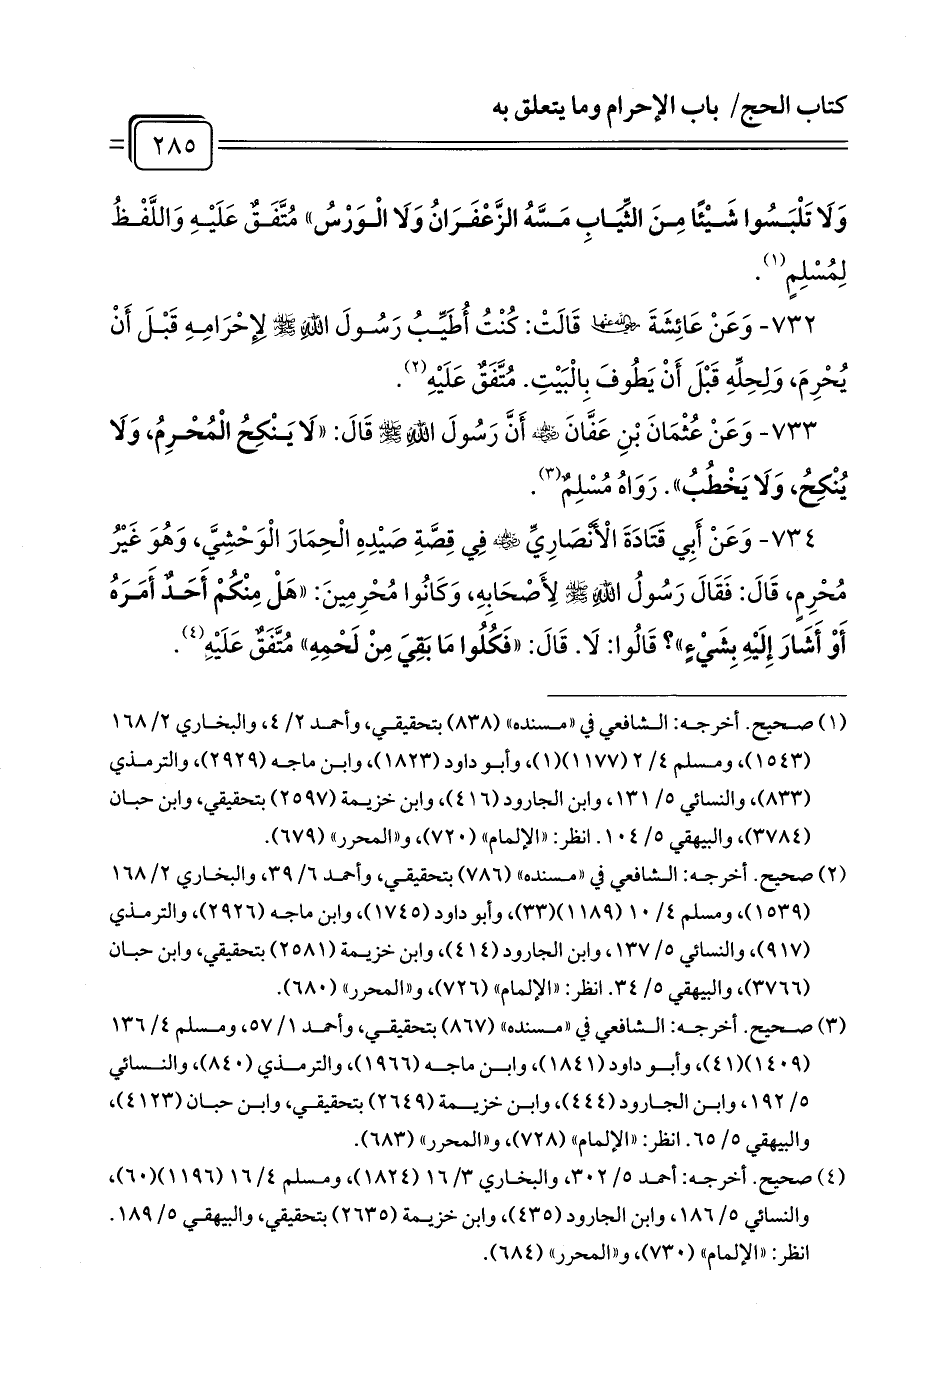 كتاب الحج/ باب الإحرام وما يتعلق به
٢٨٥
وَلَا تَلْبَسُوا شَيْئًا مِنَ الثِّيَابِ مَسَّهُ الزَّعْفَرَانُ وَلَا الْوَرْسُ» مُتَّفَقٌ عَلَيْهِ وَاللَّفْظُ
لِمُسْلِمٍ(١).
٧٣٢- وَعَنْ عَائِشَةَ رضي الله عنها قَالَتْ: كُنْتُ أُطَيِّبُ رَسُولَ اللهِ ﷺ لِإِحْرَامِهِ قَبْلَ أَنْ
يُحْرِمَ، وَلِحِلِّهِ قَبْلَ أَنْ يَطُوفَ بِالْبَيْتِ. مُتَّفَقٌ عَلَيْهِ(٢).
٧٣٣- وَعَنْ عُثْمَانَ بْنِ عَفَّانَ رضي الله عنه أَنَّ رَسُولَ اللهِ ﷺ قَالَ: «لَا يَنْكِحُ الْمُحْرِمُ، وَلَا
يُنْكِحُ، وَلَا يَخْطُبُ». رَوَاهُ مُسْلِمٌ(٣).
٧٣٤- وَعَنْ أَبِي قَتَادَةَ الْأَنْصَارِيِّ رضي الله عنه فِي قِصَّةِ صَيْدِهِ الْحِمَارَ الْوَحْشِيَّ، وَهُوَ غَيْرُ
مُحْرِمٍ، قَالَ: فَقَالَ رَسُولُ اللهِ ﷺ لِأَصْحَابِهِ، وَكَانُوا مُحْرِمِينَ: «هَلْ مِنْكُمْ أَحَدٌ أَمَرَهُ
أَوْ أَشَارَ إِلَيْهِ بِشَيْءٍ»؟ قَالُوا: لَا. قَالَ: «فَكُلُوا مَا بَقِيَ مِنْ لَحْمِهِ» مُتَّفَقٌ عَلَيْهِ(٤).
(١) صحيح. أخرجه: الشافعي في «مسنده» (٨٣٨) بتحقيقي، وأحمد ٢/ ٤، والبخاري ٢/ ١٦٨
(١٥٤٣)، ومسلم ٤/ ٢ (١١٧٧)(١)، وأبو داود (١٨٢٣)، وابن ماجه (٢٩٢٩)، والترمذي
(٨٣٣)، والنسائي ٥/ ١٣١، وابن الجارود (٤١٦)، وابن خزيمة (٢٥٩٧) بتحقيقي، وابن حبان
(٣٧٨٤)، والبيهقي ٥/ ١٠٤. انظر: «الإلمام» (٧٢٠)، و«المحرر» (٦٧٩).
(٢) صحيح. أخرجه: الشافعي في «مسنده» (٧٨٦) بتحقيقي، وأحمد ٦/ ٣٩، والبخاري ٢/ ١٦٨
(١٥٣٩)، ومسلم ٤/ ١٠ (١١٨٩)(٣٣)، وأبو داود (١٧٤٥)، وابن ماجه (٢٩٢٦)، والترمذي
(٩١٧)، والنسائي ٥/ ١٣٧، وابن الجارود (٤١٤)، وابن خزيمة (٢٥٨١) بتحقيقي، وابن حبان
(٣٧٦٦)، والبيهقي ٥/ ٣٤. انظر: «الإلمام» (٧٢٦)، و«المحرر» (٦٨٠).
(٣) صحيح. أخرجه: الشافعي في «مسنده» (٨٦٧) بتحقيقي، وأحمد ١/ ٥٧، ومسلم ٤/ ١٣٦
(١٤٠٩)(٤١)، وأبو داود (١٨٤١)، وابن ماجه (١٩٦٦)، والترمذي (٨٤٠)، والنسائي
٥/ ١٩٢، وابن الجارود (٤٤٤)، وابن خزيمة (٢٦٤٩) بتحقيقي، وابن حبان (٤١٢٣)،
والبيهقي ٥/ ٦٥. انظر: «الإلمام» (٧٢٨)، و«المحرر» (٦٨٣).
(٤) صحيح. أخرجه: أحمد ٥/ ٣٠٢، والبخاري ٣/ ١٦ (١٨٢٤)، ومسلم ٤/ ١٦ (١١٩٦)(٦٠)،
والنسائي ٥/ ١٨٦، وابن الجارود (٤٣٥)، وابن خزيمة (٢٦٣٥) بتحقيقي، والبيهقي ٥/ ١٨٩.
انظر: «الإلمام» (٧٣٠)، و«المحرر» (٦٨٤).